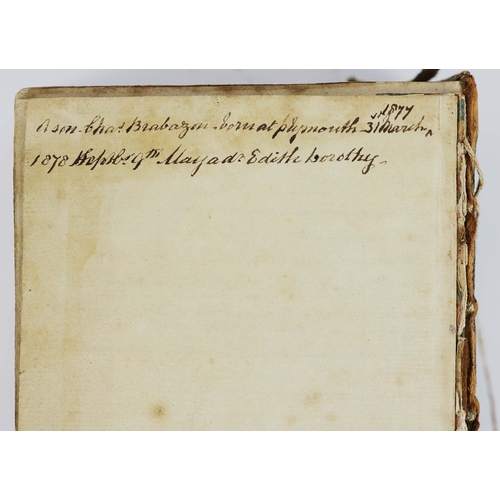 A son Chas Brabazon born at plymouth 31st March 1877
1878 9th May a dr Edith Dorothy